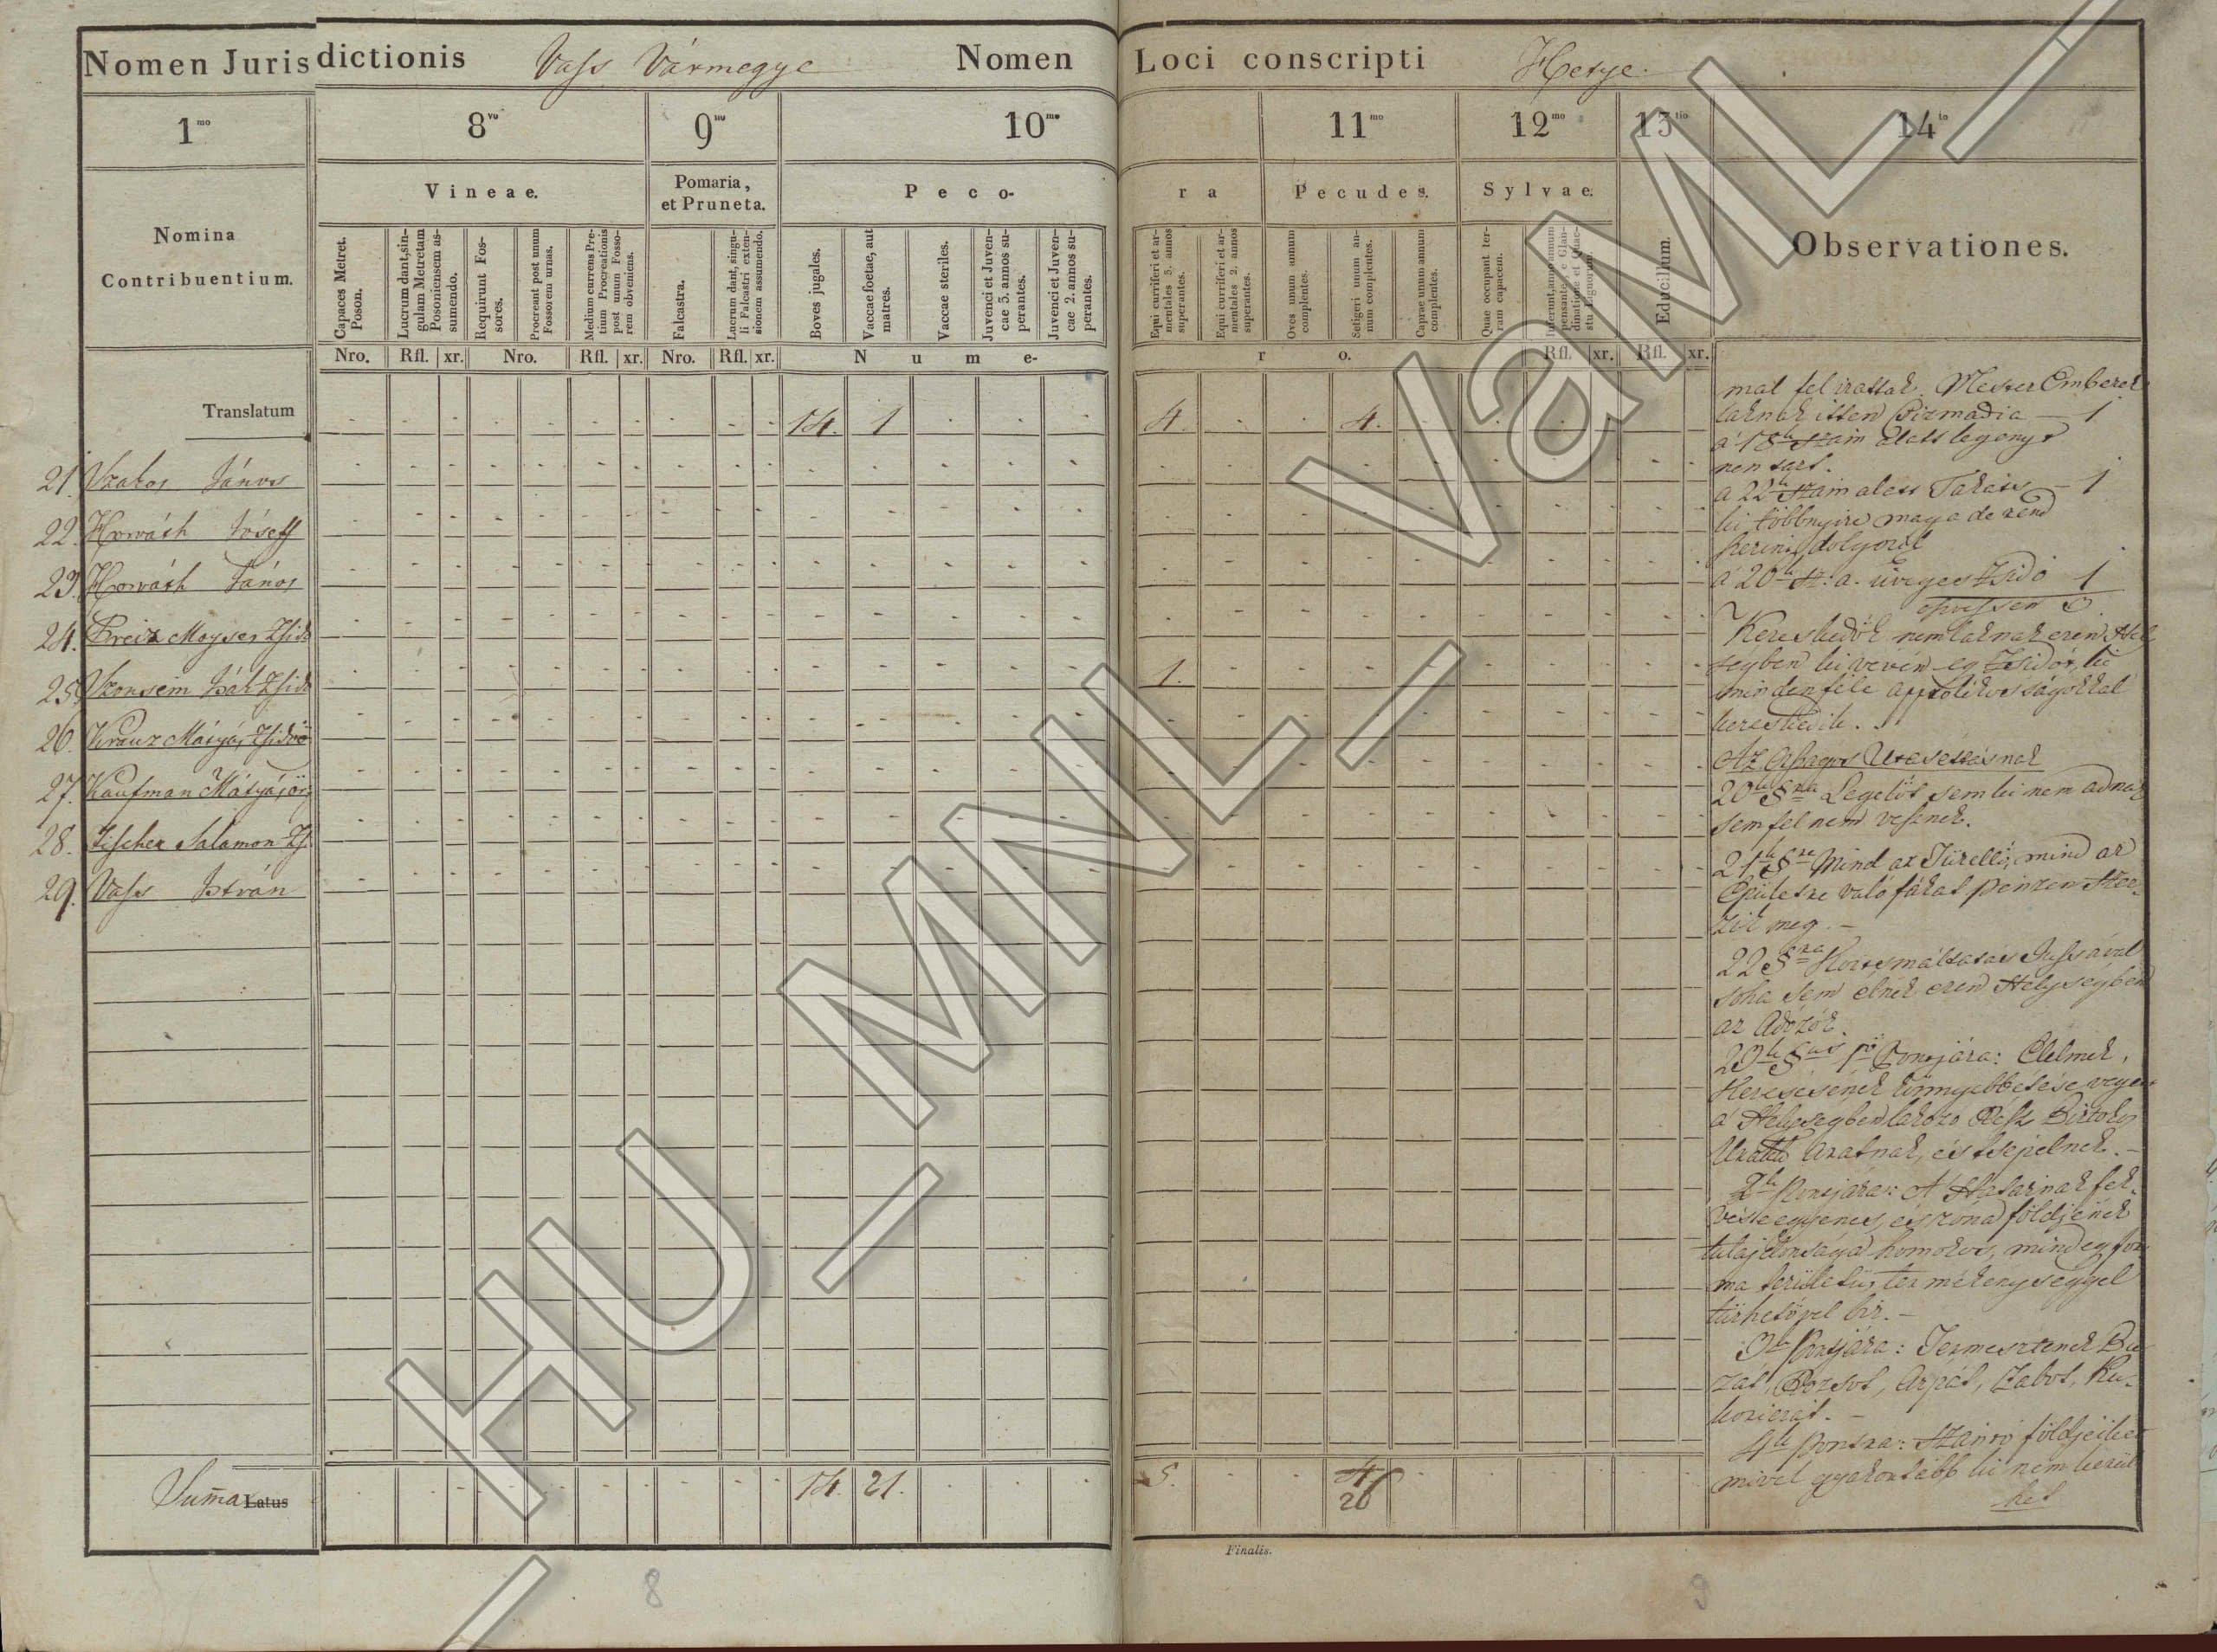 Nomen Jurisdictionis Vass Vármegye Nomen Loci conscripti Hetye.
1mo 8vo 9no 10mo 11mo 12mo 13tio 14to
Nomina Contribuentium.
Vineae.
Pomaria, et Pruneta.
Pecora
Pecudes.
Sylvae.
Educillum.
Observationes.
Capaces Metret. Poson.
Lucrum dant, singulam Metretam Posoniensem assumendo.
Requirunt Fossores.
Procreant post unum Fossorem urnas.
Medium currens Pretium Procreationis post unum Fossorem obveniens.
Falcastra.
Lucrum dant, singuli Falcastri extensionem assumendo.
Boves jugales.
Vaccae foetae, aut matres.
Vaccae steriles.
Juvenci et Juvencae 3. annos superantes.
Juvenci et Juvencae 2. annos superantes.
Equi curriferi et armentales 3. annos superantes.
Equi curriferi et armentales 2. annos superantes.
Oves unum annum complentes.
Setigeri unum annum complentes.
Caprae unum annum complentes.
Quae occupant terram capacem.
Nro. Rfl. xr. Nro. Rfl. xr. Nro. Rfl. xr. Nume- ro. Rfl. xr. Rfl. xr.
Translatum 14. 1 4. 4.
21. Szakos János
22. Horváth Jóseff
23. Horváth János
24. Breiz Moyses Zsidó
25. Pál Zsidó 1.
26. Krauz Mátyás Zsidó
27. Kaufman Mátyás
28. Fischer Salamon Zs.
29. Vass István
Suma Latus 14. 21. 5. 4 26
mal fel irattak. Mester Emberek
laknak itten Csizmadia — 1
a 18k szám alatt legényt
nem tart.
a 22k szám alatt Takács — 1
ki többnyire maga de rend
szerint dolgozik
a 20k sz: a. üveges Zsidó 1
öszvessen 3.
Kereskedők nem laknak ezen Hely
ségben ki vévén egy Zsidót, ki
minden féle apróllékosságokkal
kereskedik.
Az Utasításnak
20k §ra Legelőt sem ki nem adnak
sem fel nem vesznek.
21k §ra Mind az Tüzellő, mind az
Épületre való fákat pénzen szer-
zik meg. —
22 §ra Kortsmáltatás Jussával
soha sem élnek ezen Helységben
az Adózók.
Ponjára: Élelmek,
Keresésének könnyebbétése végett
a Helységben lakozó Rész Birtokos
Uraknál Aratnak, és tsépelnek. —
2k Ponjára: A Határnak fek-
vése egyenes, és róna földjének
tulajdonsága homokos, mind egy for
ma területű, termékenységgel
tűrhetővel bír. —
3k Pontjára: Termesztenek Bu
zát, Rozsot, Árpát, Zabot, Ku-
koriczát. —
4k Pontra: Szántó földjeiket
mivel gyakortább ki nem kerül
het
Finalis.
8
9
HU_MNL_VaML_